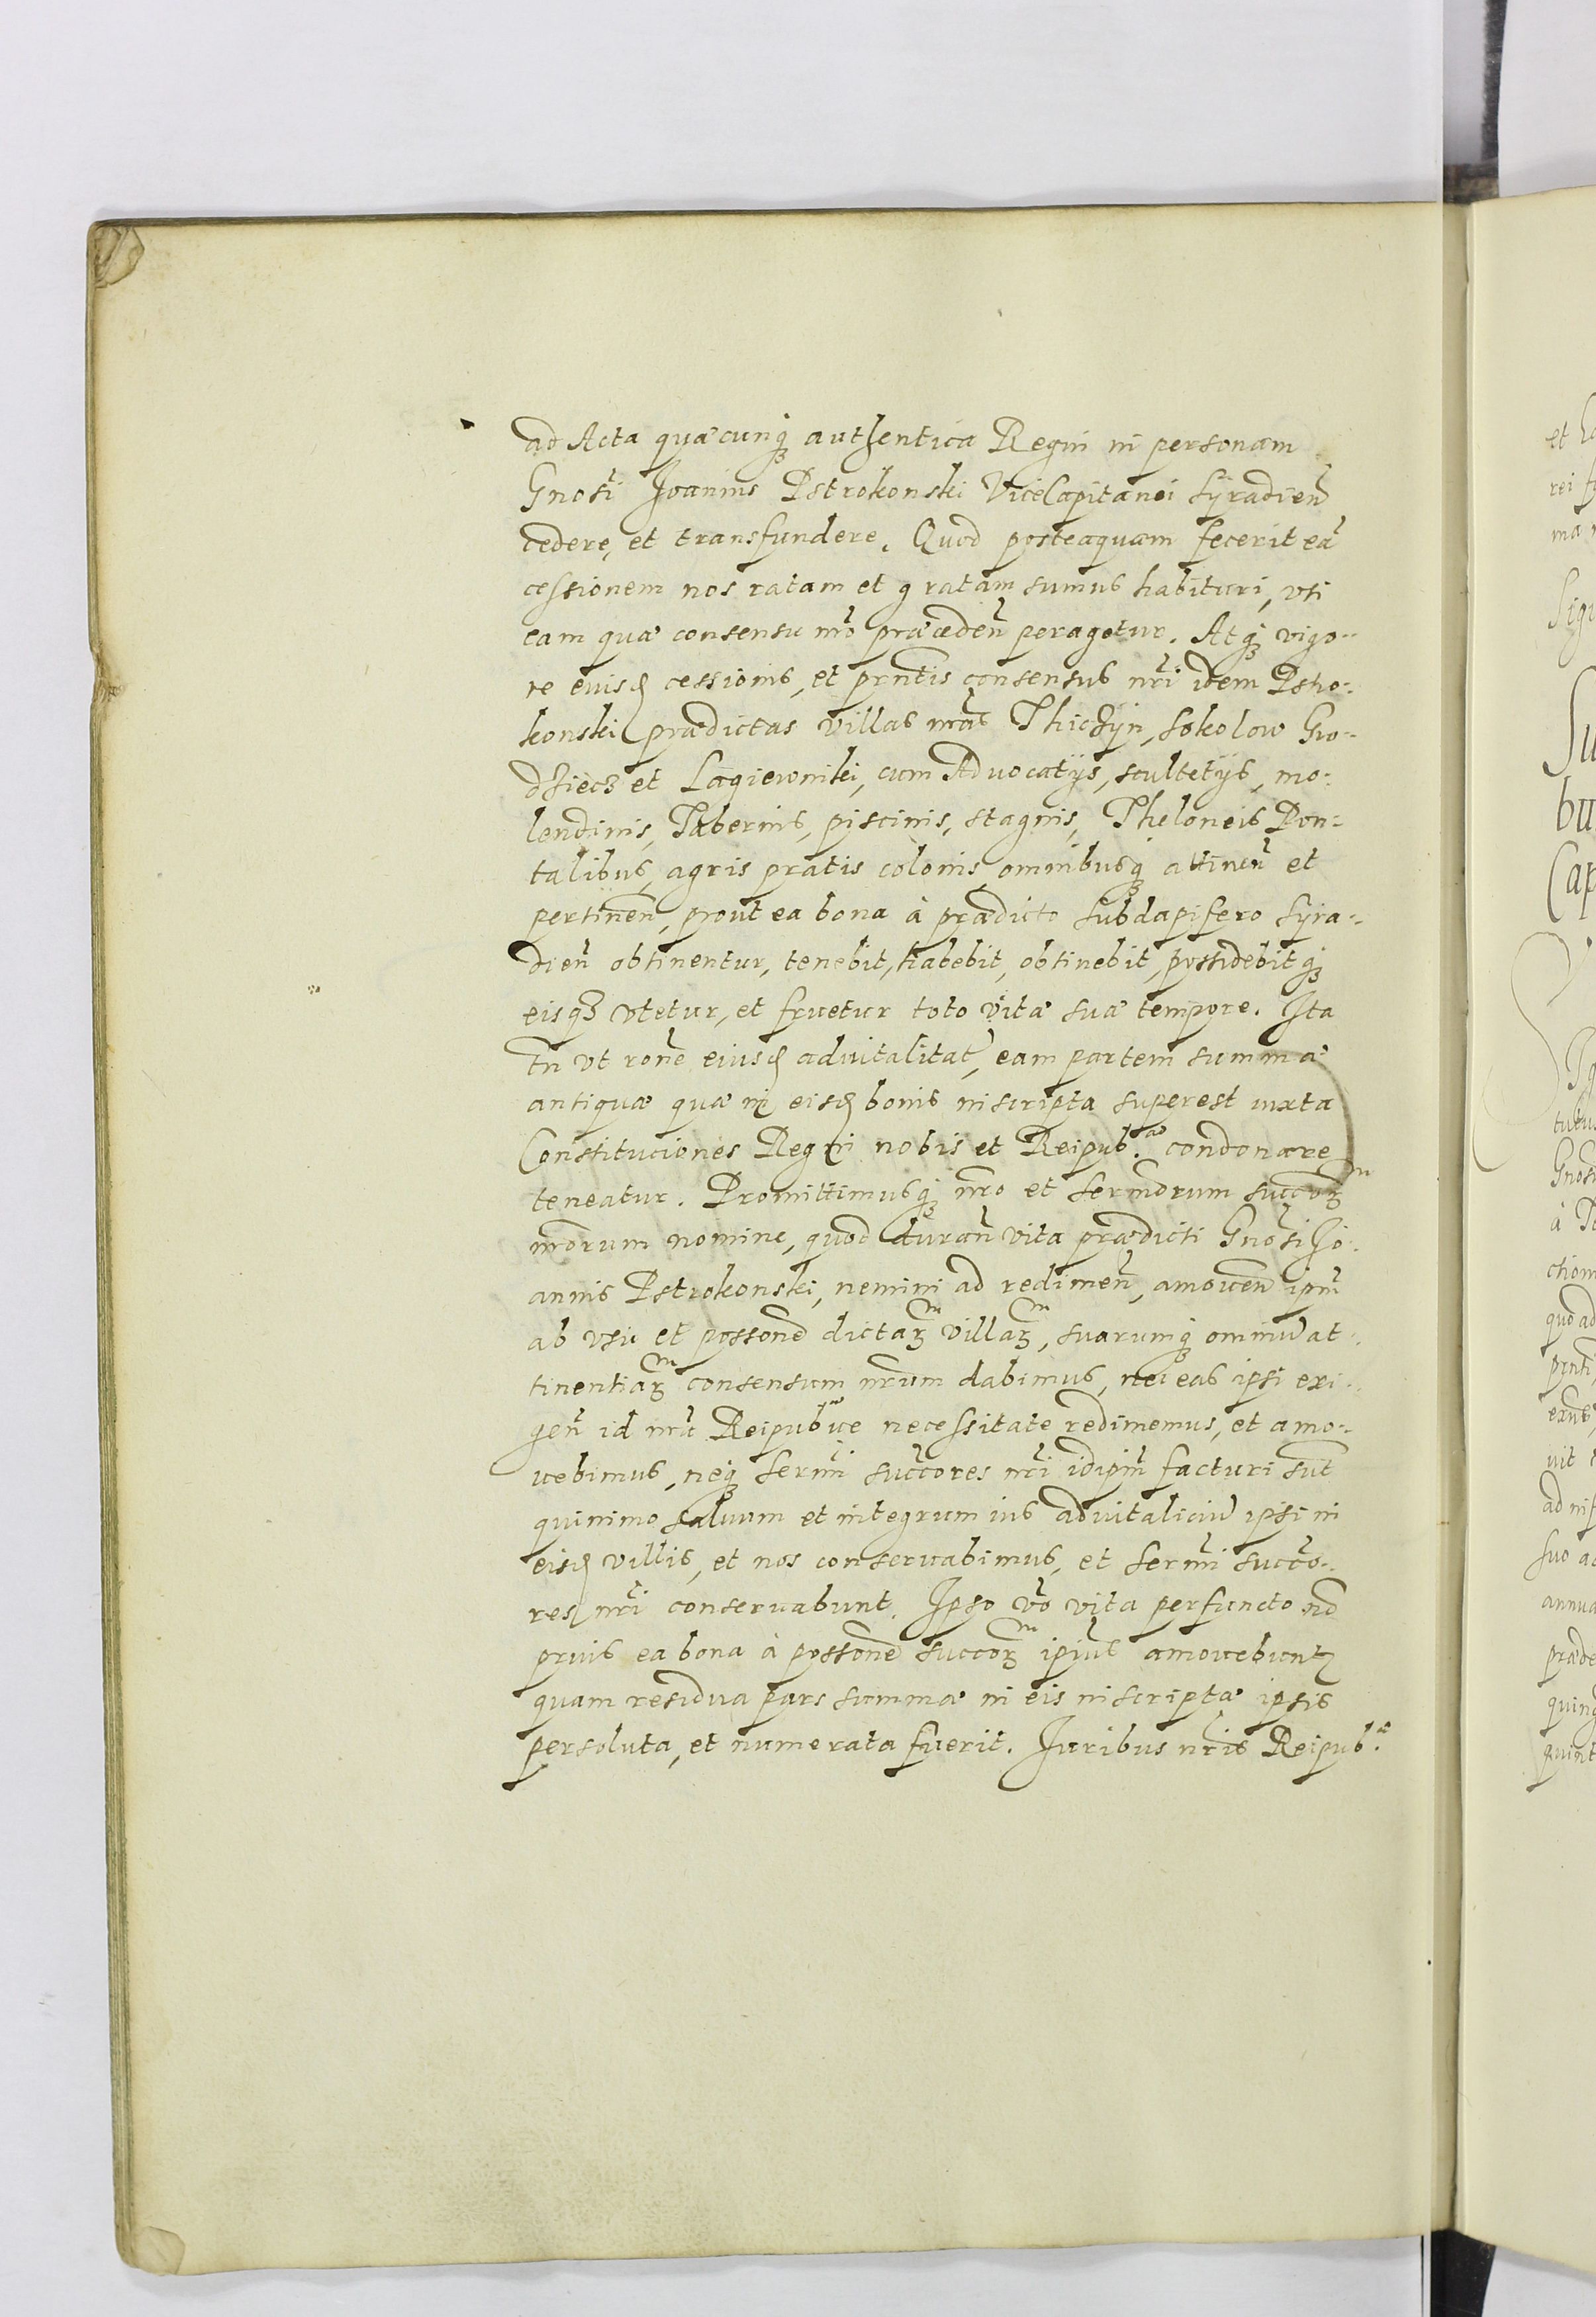 ad Acta quæcunq̃ authentica Regni in personam
Gnosi Joannis Pstrokonski ViceCapitanei Syradien̄
cedere, et transfundere. Quod posteaquam fecerit eā
cessionem nos ratam et gratam sumus habituri, vti
eam quæ consensu nr̄o præceden̄ peragetur. Atq̃ vigo-
re euisd cessionis, et prn̄tis consensus nr̄i idem Pstro-
konski prædictas villas nr̄as Thiczyn, Sokolow Gro-
dziecz et Lagiewniki, cum Aduocatijs, scultetijs, mo-
lendinis, Tabernis, piscinis, stagnis, Theloneis Pon-
talibus, agris pratis colonis, omnibusq̃ attinen̄ et
pertinen̄, prout ea bona à prædicto Subdapifero Syra-
dien̄ obtinentur, tenebit, habebit, obtinebit, possidebitq̃
eisqz vtetur, et fruetur toto vitæ suæ tempore. Ita
tn̄ vt ron̄e eiusd aduitalitat̄, eam partem summæ
antiquæ quæ in eisd bonis inscripta superest iuxta
Constituciones Regni nobis et Reipub.æ condonare
teneatur. Promittimusq̃ nr̄o et Serm̄orum succorꝝ
nr̄orum nomine, quod duran̄ vita prædicti Gnosi Jo-
annis Pstrokonski, nemini ad redimen̄, amouen̄ ipm̄
ab vsu et posson̄e dictarꝝ villarꝝ, suarumq̃ omniū at-
tinentiarꝝ consensum nr̄um dabimus, nec eas ipsi exi-
gen̄ id nr̄a Reipubcæ necessitate redimemus, et amo-
uebimus, neq̃ Serm̄i succores nr̄i idipm̄ facturi sūt
quinimo saluum et integrum ius aduitaliciū ipsi in
eisd villis, et nos conseruabimus, et Serm̄i succo-
res nr̄i conseruabunt. Ipso vo vita perfuncto nō
prius ea bona à posson̄e succorꝝ ipius amouebuntr
quam residua pars summæ in eis inscriptæ ipsis
persoluta, et numerata fuerit. Juribus nr̄is Reipub.æ